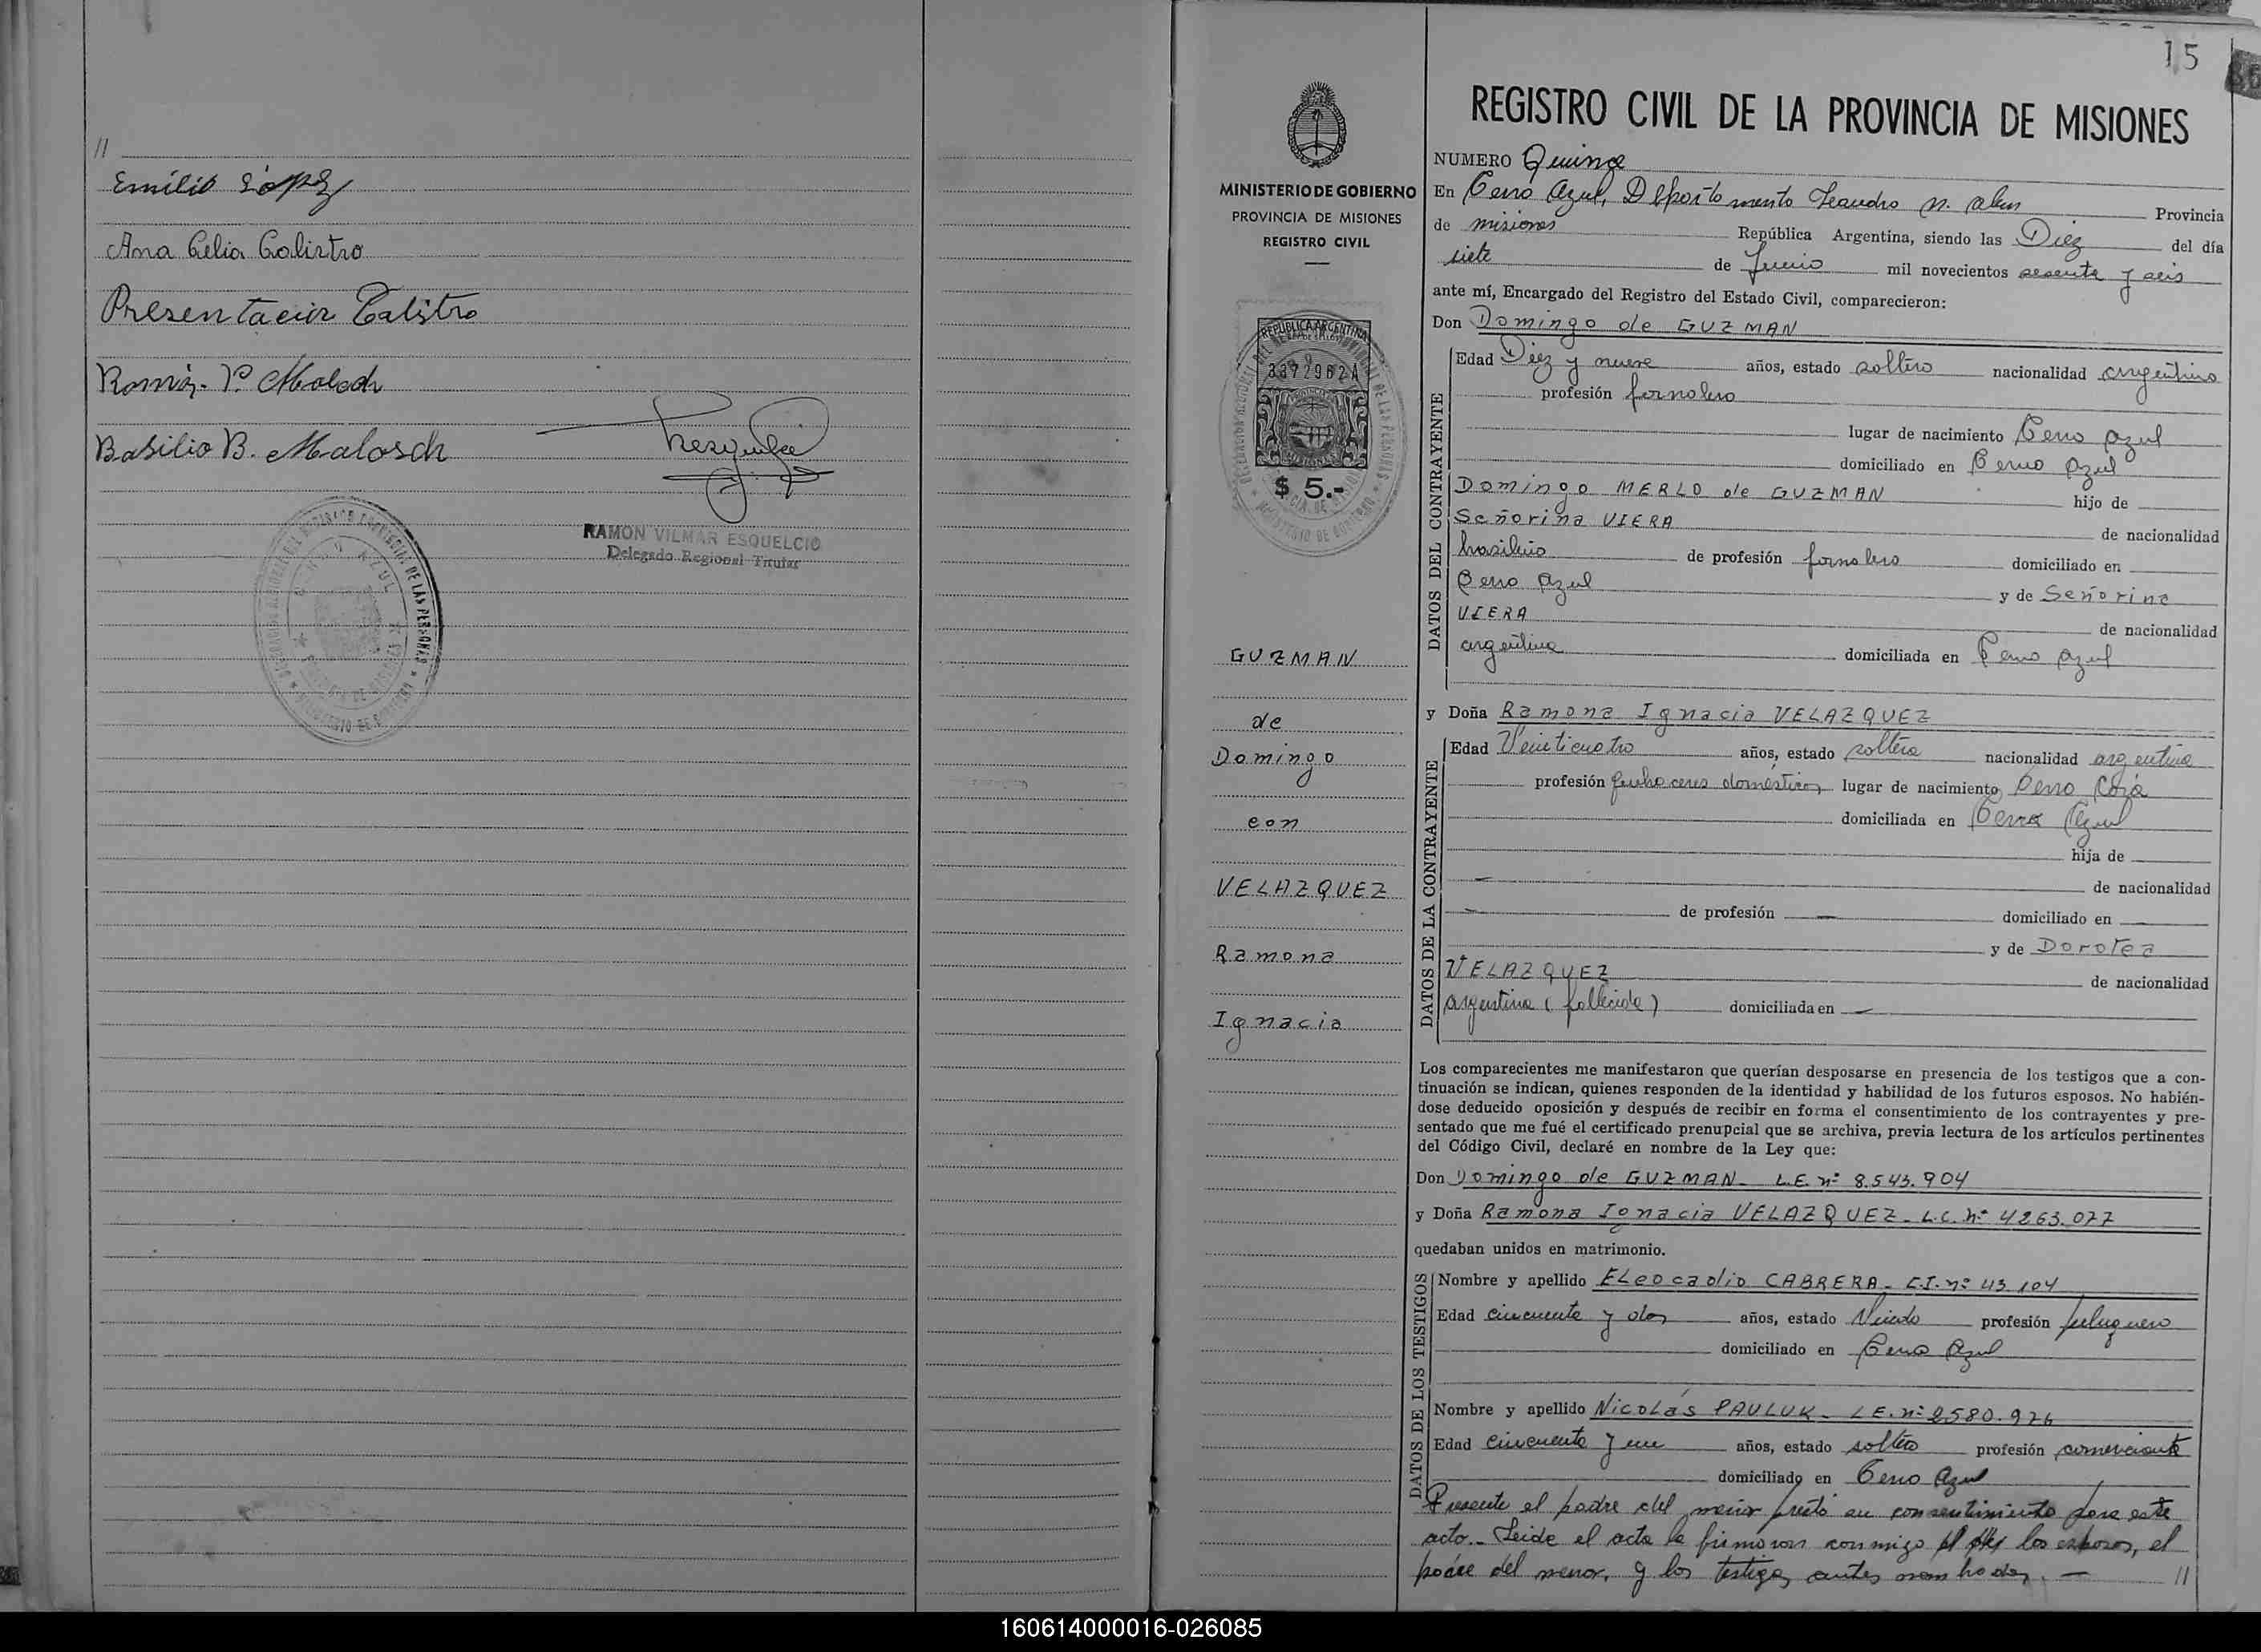 //
Emilio López
Ana Celia Calistro
Presentación Calistro
Ramón. P. Malosch
Basilio B. Malosch
RAMON VILMAR ESQUELCIO
Delegado Regional Titular
15
MINISTERIO DE GOBIERNO
PROVINCIA DE MISIONES
REGISTRO CIVIL
REPUBLICA ARGENTINA
3372962A
MISIONES
$ 5.-
GUZMAN
de
Domingo
con
VELAZQUEZ
Ramona
Ignacia
REGISTRO CIVIL DE LA PROVINCIA DE MISIONES
NUMERO Quince
En Cerro Azul, Departamento Leandro N. Alem Provincia
de Misiones República Argentina, siendo las Diez del día
siete de Junio mil novecientos sesenta y seis
ante mí, Encargado del Registro del Estado Civil, comparecieron:
Don Domingo de GUZMAN
DATOS DEL CONTRAYENTE
Edad Diez y nueve años, estado soltero nacionalidad argentino
profesión jornalero
lugar de nacimiento Cerro Azul
domiciliado en Cerro Azul
Domingo MERLO de GUZMAN hijo de
Señorina VIERA de nacionalidad
brasileño de profesión jornalero domiciliado en
Cerro Azul y de Señorina
VIERA de nacionalidad
argentina domiciliada en Cerro Azul
y Doña Ramona Ignacia VELAZQUEZ
DATOS DE LA CONTRAYENTE
Edad Veinticuatro años, estado soltera nacionalidad argentina
profesión quehaceres domésticos lugar de nacimiento Cerro Corá
domiciliada en Cerro Azul
hija de
— de nacionalidad
— de profesión — domiciliado en —
y de Dorotea
VELAZQUEZ de nacionalidad
argentina (fallecida) domiciliada en —
Los comparecientes me manifestaron que querían desposarse en presencia de los testigos que a con-
tinuación se indican, quienes responden de la identidad y habilidad de los futuros esposos. No habién-
dose deducido oposición y después de recibir en forma el consentimiento de los contrayentes y pre-
sentado que me fué el certificado prenupcial que se archiva, previa lectura de los artículos pertinentes
del Código Civil, declaré en nombre de la Ley que:
Don Domingo de GUZMAN- L.E. nº 8.543.904
y Doña Ramona Ignacia VELAZQUEZ- L.C. nº 4263.077
quedaban unidos en matrimonio.
DATOS DE LOS TESTIGOS
Nombre y apellido ELeocadio CABRERA- C.I. nº 43.104
Edad cincuenta y dos años, estado Viudo profesión peluquero
domiciliado en Cerro Azul
Nombre y apellido Nicolás PAULUK- L.E. nº 2580.976
Edad cincuenta y un años, estado soltero profesión comerciante
domiciliado en Cerro Azul
Presente el padre del menor prestó su consentimiento para este
acto.- Leida el acta la firmaron conmigo los esposos, el
padre del menor, y los testigos antes nombrados. — //
160614000016-026085